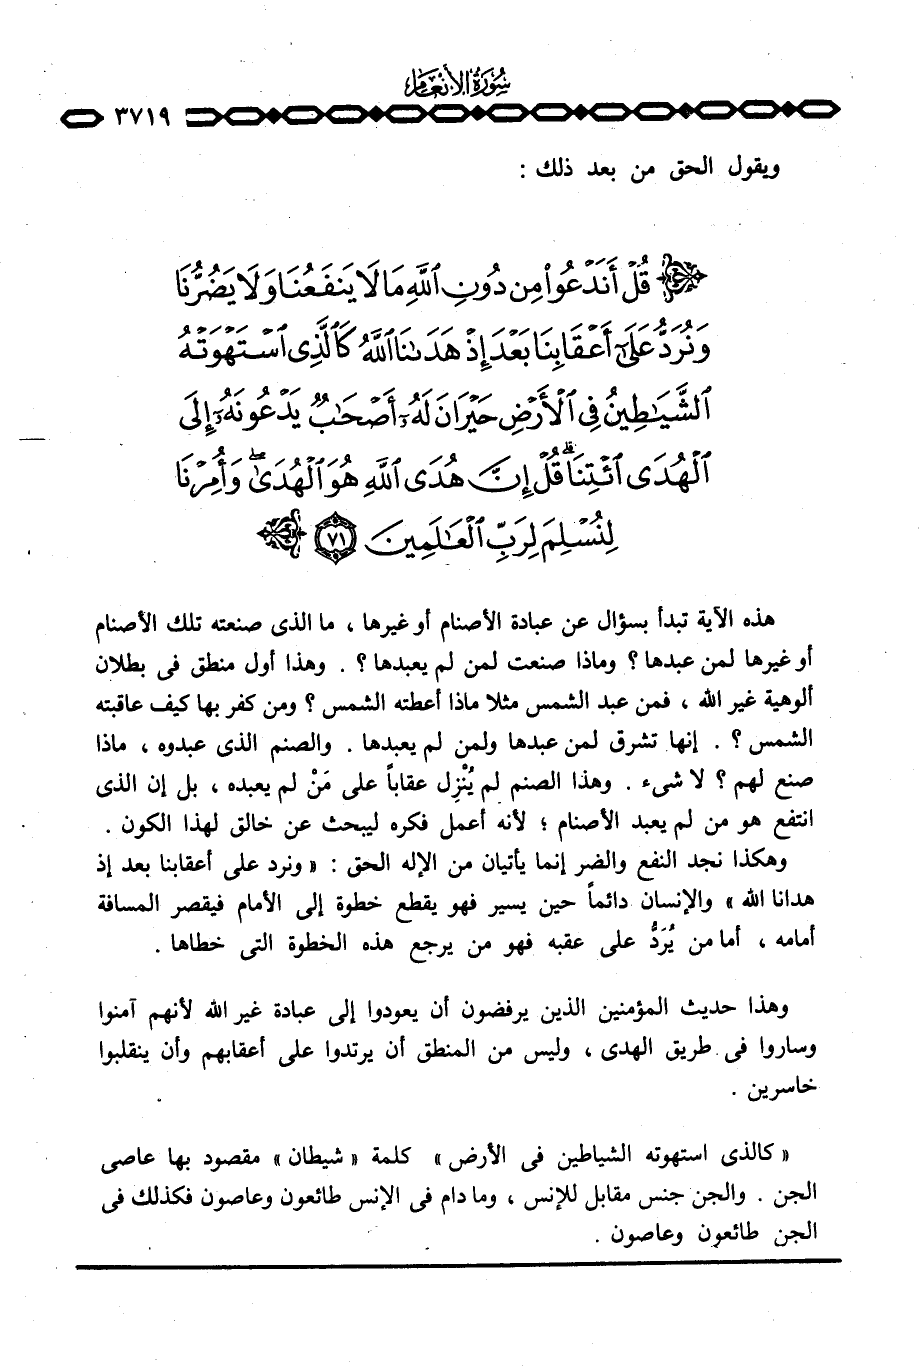 سورة الأنعام
٣٧١٩
ويقول الحق من بعد ذلك :
قُلْ أَنَدْعُوا۟ مِن دُونِ ٱللَّهِ مَا لَا يَنفَعُنَا وَلَا يَضُرُّنَا
وَنُرَدُّ عَلَىٰٓ أَعْقَابِنَا بَعْدَ إِذْ هَدَىٰنَا ٱللَّهُ كَٱلَّذِى ٱسْتَهْوَتْهُ
ٱلشَّيَٰطِينُ فِى ٱلْأَرْضِ حَيْرَانَ لَهُۥٓ أَصْحَٰبٌ يَدْعُونَهُۥٓ إِلَى
ٱلْهُدَى ٱئْتِنَا ۗ قُلْ إِنَّ هُدَى ٱللَّهِ هُوَ ٱلْهُدَىٰ ۖ وَأُمِرْنَا
لِنُسْلِمَ لِرَبِّ ٱلْعَٰلَمِينَ ٧١
هذه الآية تبدأ بسؤال عن عبادة الأصنام أو غيرها ، ما الذى صنعته تلك الأصنام
أو غيرها لمن عبدها ؟ وماذا صنعت لمن لم يعبدها ؟ . وهذا أول منطق فى بطلان
ألوهية غير الله ، فمن عبد الشمس مثلا ماذا أعطته الشمس ؟ ومن كفر بها كيف عاقبته
الشمس ؟ . إنها تشرق لمن عبدها ولمن لم يعبدها . والصنم الذى عبدوه ، ماذا
صنع لهم ؟ لا شىء . وهذا الصنم لم يُنْزِل عقاباً على مَنْ لم يعبده ، بل إن الذى
انتفع هو من لم يعبد الأصنام ؛ لأنه أعمل فكره ليبحث عن خالق لهذا الكون .
وهكذا نجد النفع والضر إنما يأتيان من الإله الحق : « ونرد على أعقابنا بعد إذ
هدانا الله » والإنسان دائماً حين يسير فهو يقطع خطوة إلى الأمام فيقصر المسافة
أمامه ، أما من يُرَدُّ على عقبه فهو من يرجع هذه الخطوة التى خطاها .
وهذا حديث المؤمنين الذين يرفضون أن يعودوا إلى عبادة غير الله لأنهم آمنوا
وساروا فى طريق الهدى ، وليس من المنطق أن يرتدوا على أعقابهم وأن ينقلبوا
خاسرين .
« كالذى استهوته الشياطين فى الأرض » كلمة « شيطان » مقصود بها عاصى
الجن . والجن جنس مقابل للإنس ، وما دام فى الإنس طائعون وعاصون فكذلك فى
الجن طائعون وعاصون .